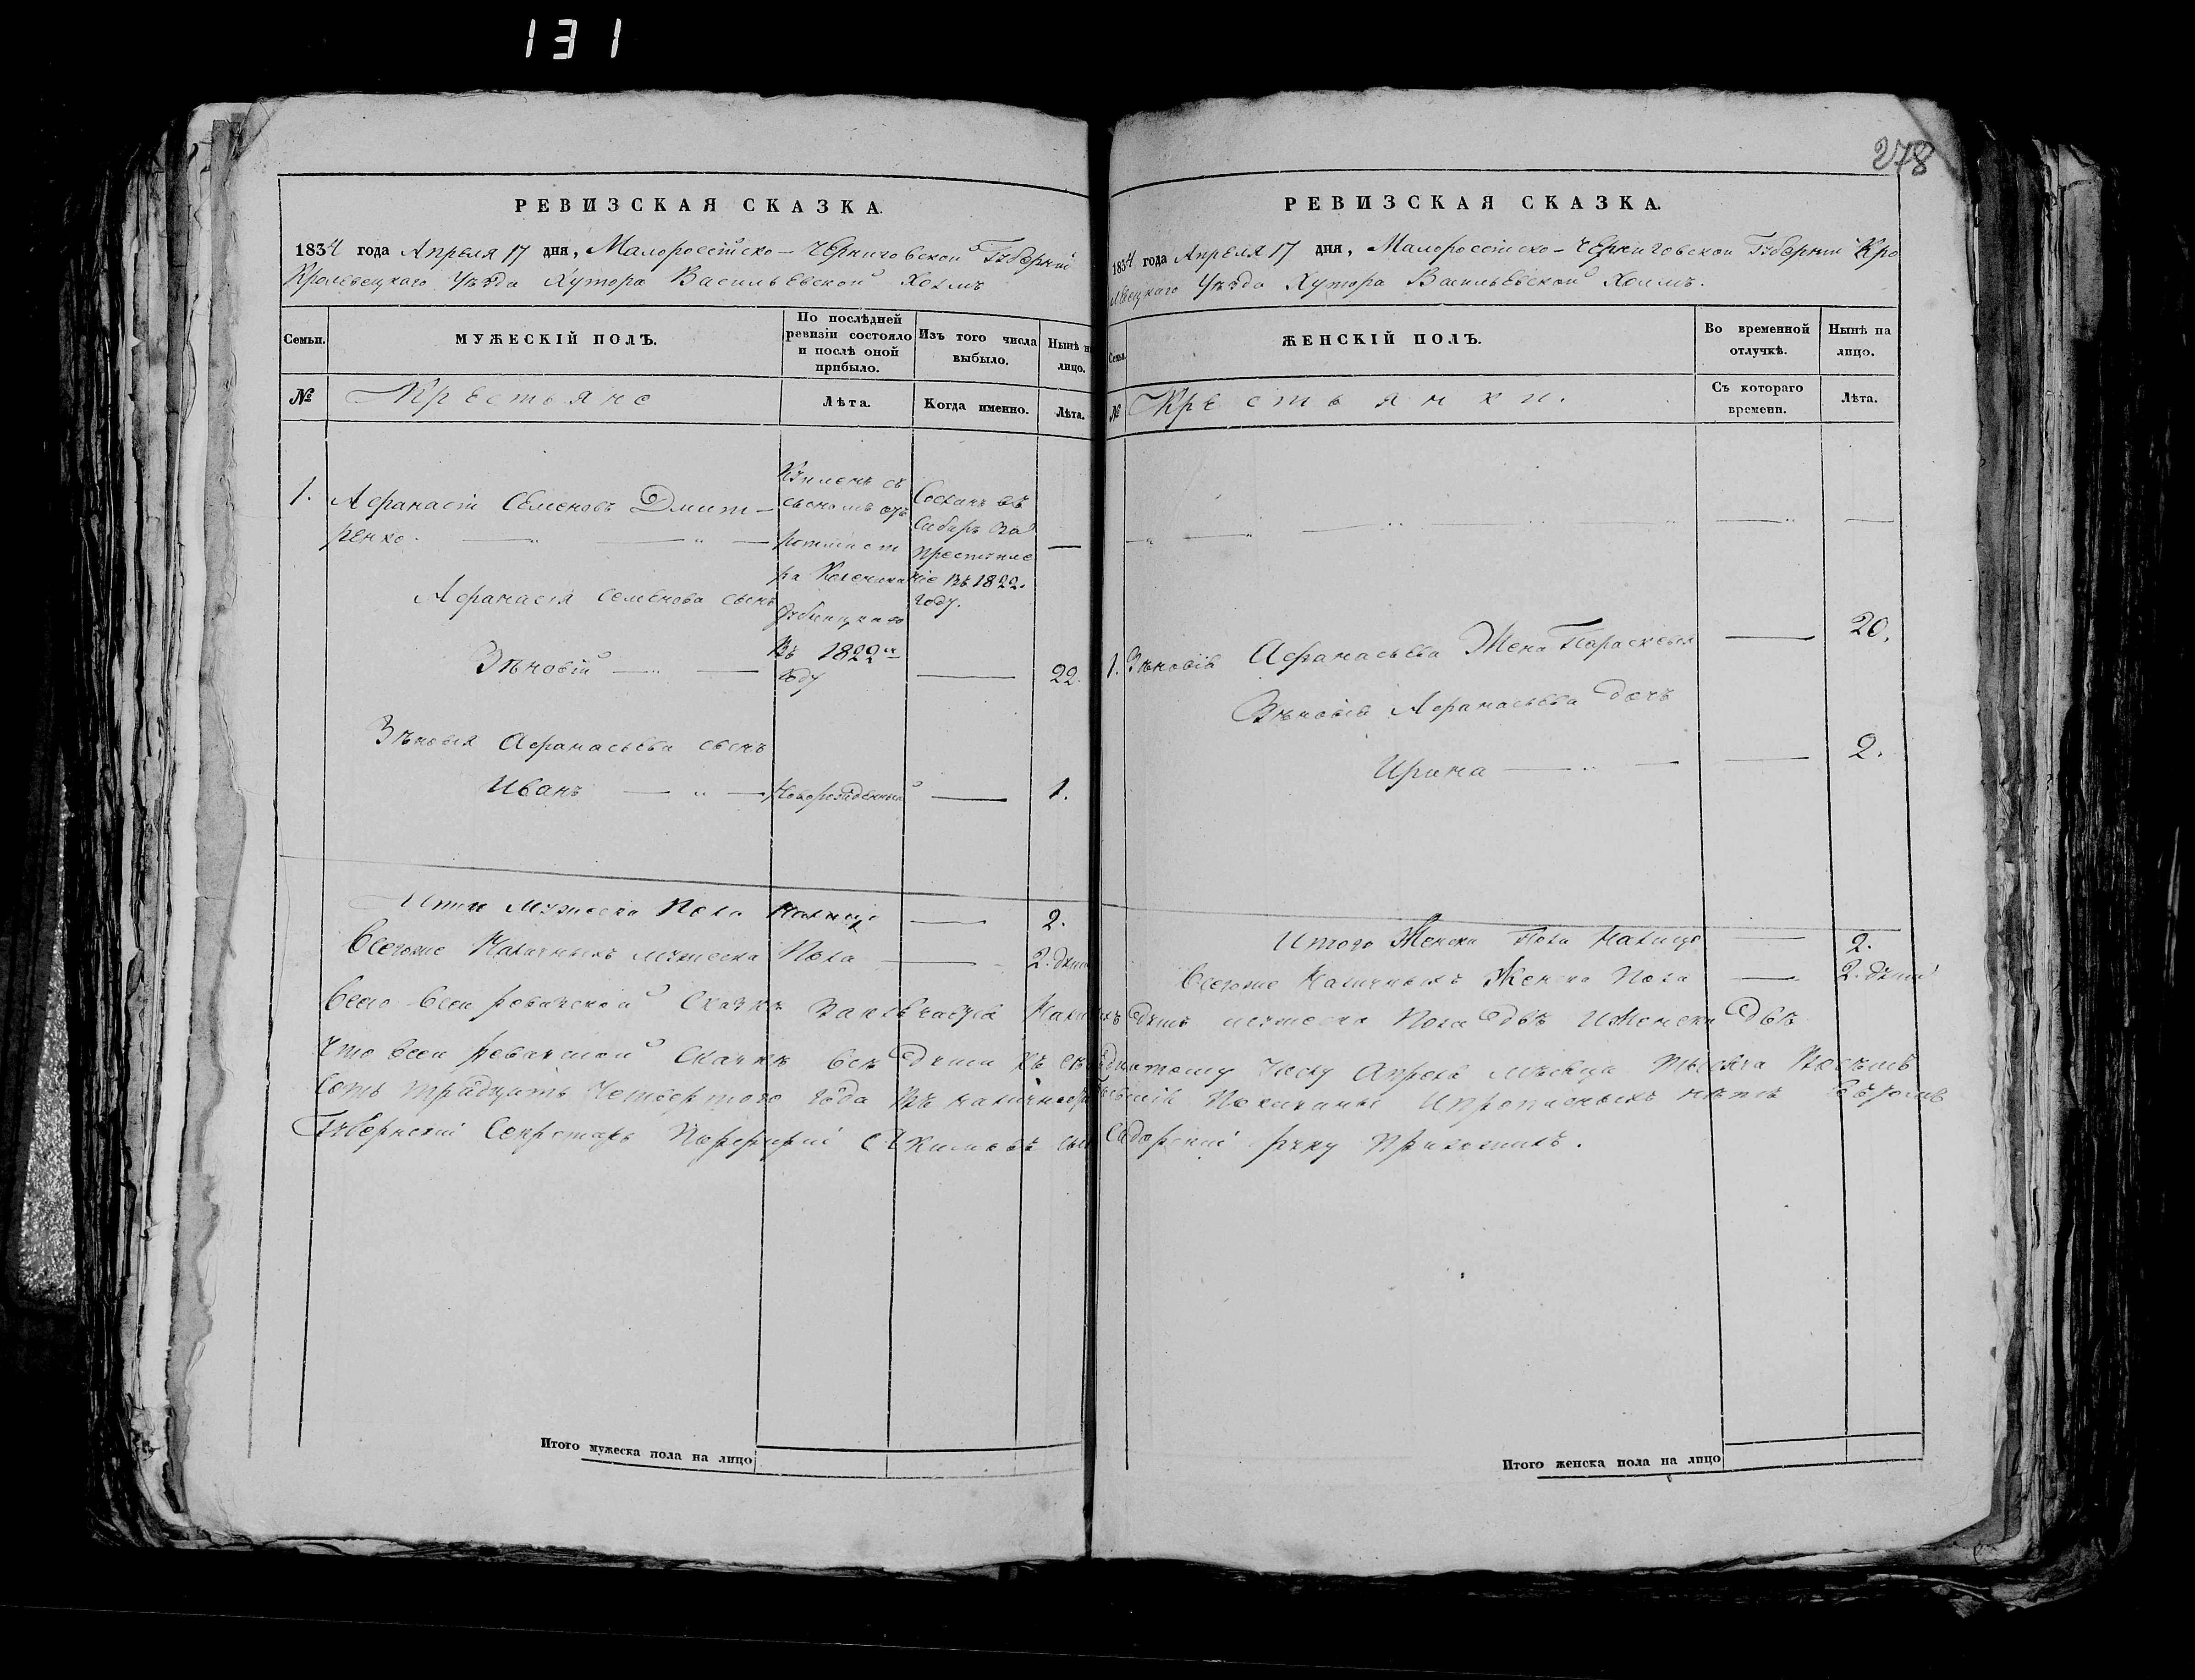 131
278
РЕВИЗСКАЯ СКАЗКА.
1834 года Апреля 17 дня, Малороссійско-Черниговской Губерніи
Кролевецкаго Уѣзда Хутора Васильевской Холмъ
Семьи.
МУЖЕСКІЙ ПОЛЪ.
По послѣдней ревизіи состояло и послѣ оной прибыло.
Изъ того числа выбыло.
Нынѣ на лицо.
№
Крестьяне
Лѣта.
Когда именно.
Лѣта.
1.
Афанасій Семеновъ Дмит-
ренко.
Купленъ съ
сыномъ
Въ 1822м
году
Сосланъ въ
Сибирь за
преступле
ніе въ 1822.
году.
Афанасія Семенова сынъ
Зѣновій
22.
Зѣновія Афанасьева сынъ
Иванъ
Новорожденный
1.
Итого Мужеска Пола Налицо 2.
Всегоже Наличныхъ мужеска Пола 2. души
РЕВИЗСКАЯ СКАЗКА.
1834 года Апреля 17 дня, Малороссійско-Черниговской Губерніи Кро
левецкаго Уѣзда Хутора Васильевской Холмъ.
Семьи.
ЖЕНСКІЙ ПОЛЪ.
Во временной отлучкѣ.
Нынѣ на лицо.
№
Крестьянки.
Съ котораго времени.
Лѣта.
1. Зѣновія Афанасьева Жена Параскевія 20.
Зѣновія Афанасьева дочь
Ирина 2.
Итого Женска Пола Налицо 2.
Всегоже Наличныхъ Женска Пола 2. души
Всего Всей ревизской Сказкѣ душъ мужеска Пола двѣ и Женска двѣ
Что всей ревизской Сказкѣ всѣ души къ числу Апреля мѣсяца тысяча Восемь
Сотъ тридцать Четвертого Года и прописныхъ нѣтъ
Губернскій Секретарь Порфирій руку Приложилъ.
Итого мужеска пола на лицо
Итого женска пола на лицо